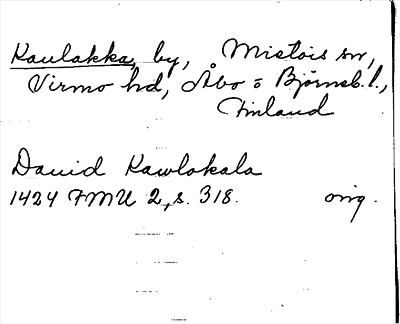 Kaulakka, by, Mietois sn,
Virmo hd, Åbo o Björneb. l.,
Finland
David Kawlakala
1424 FMU 2, s. 318. orig.